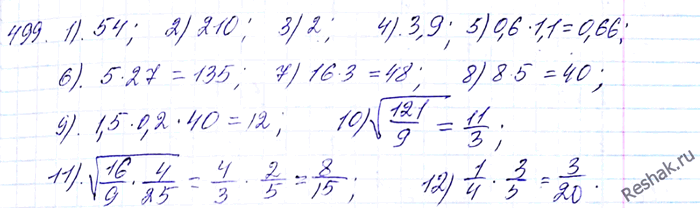 499. 1). 54; 2) 210; 3) 2; 4). 3,9; 5) 0,6 · 1,1 = 0,66;
6). 5 · 27 = 135; 7) 16 · 3 = 48; 8) 8 · 5 = 40;
9). 1,5 · 0,2 · 40 = 12; 10) √(121/9) = 11/3;
11). √(16/9 · 4/25) = 4/3 · 2/5 = 8/15; 12) 1/4 · 3/5 = 3/20.
Reshak.ru